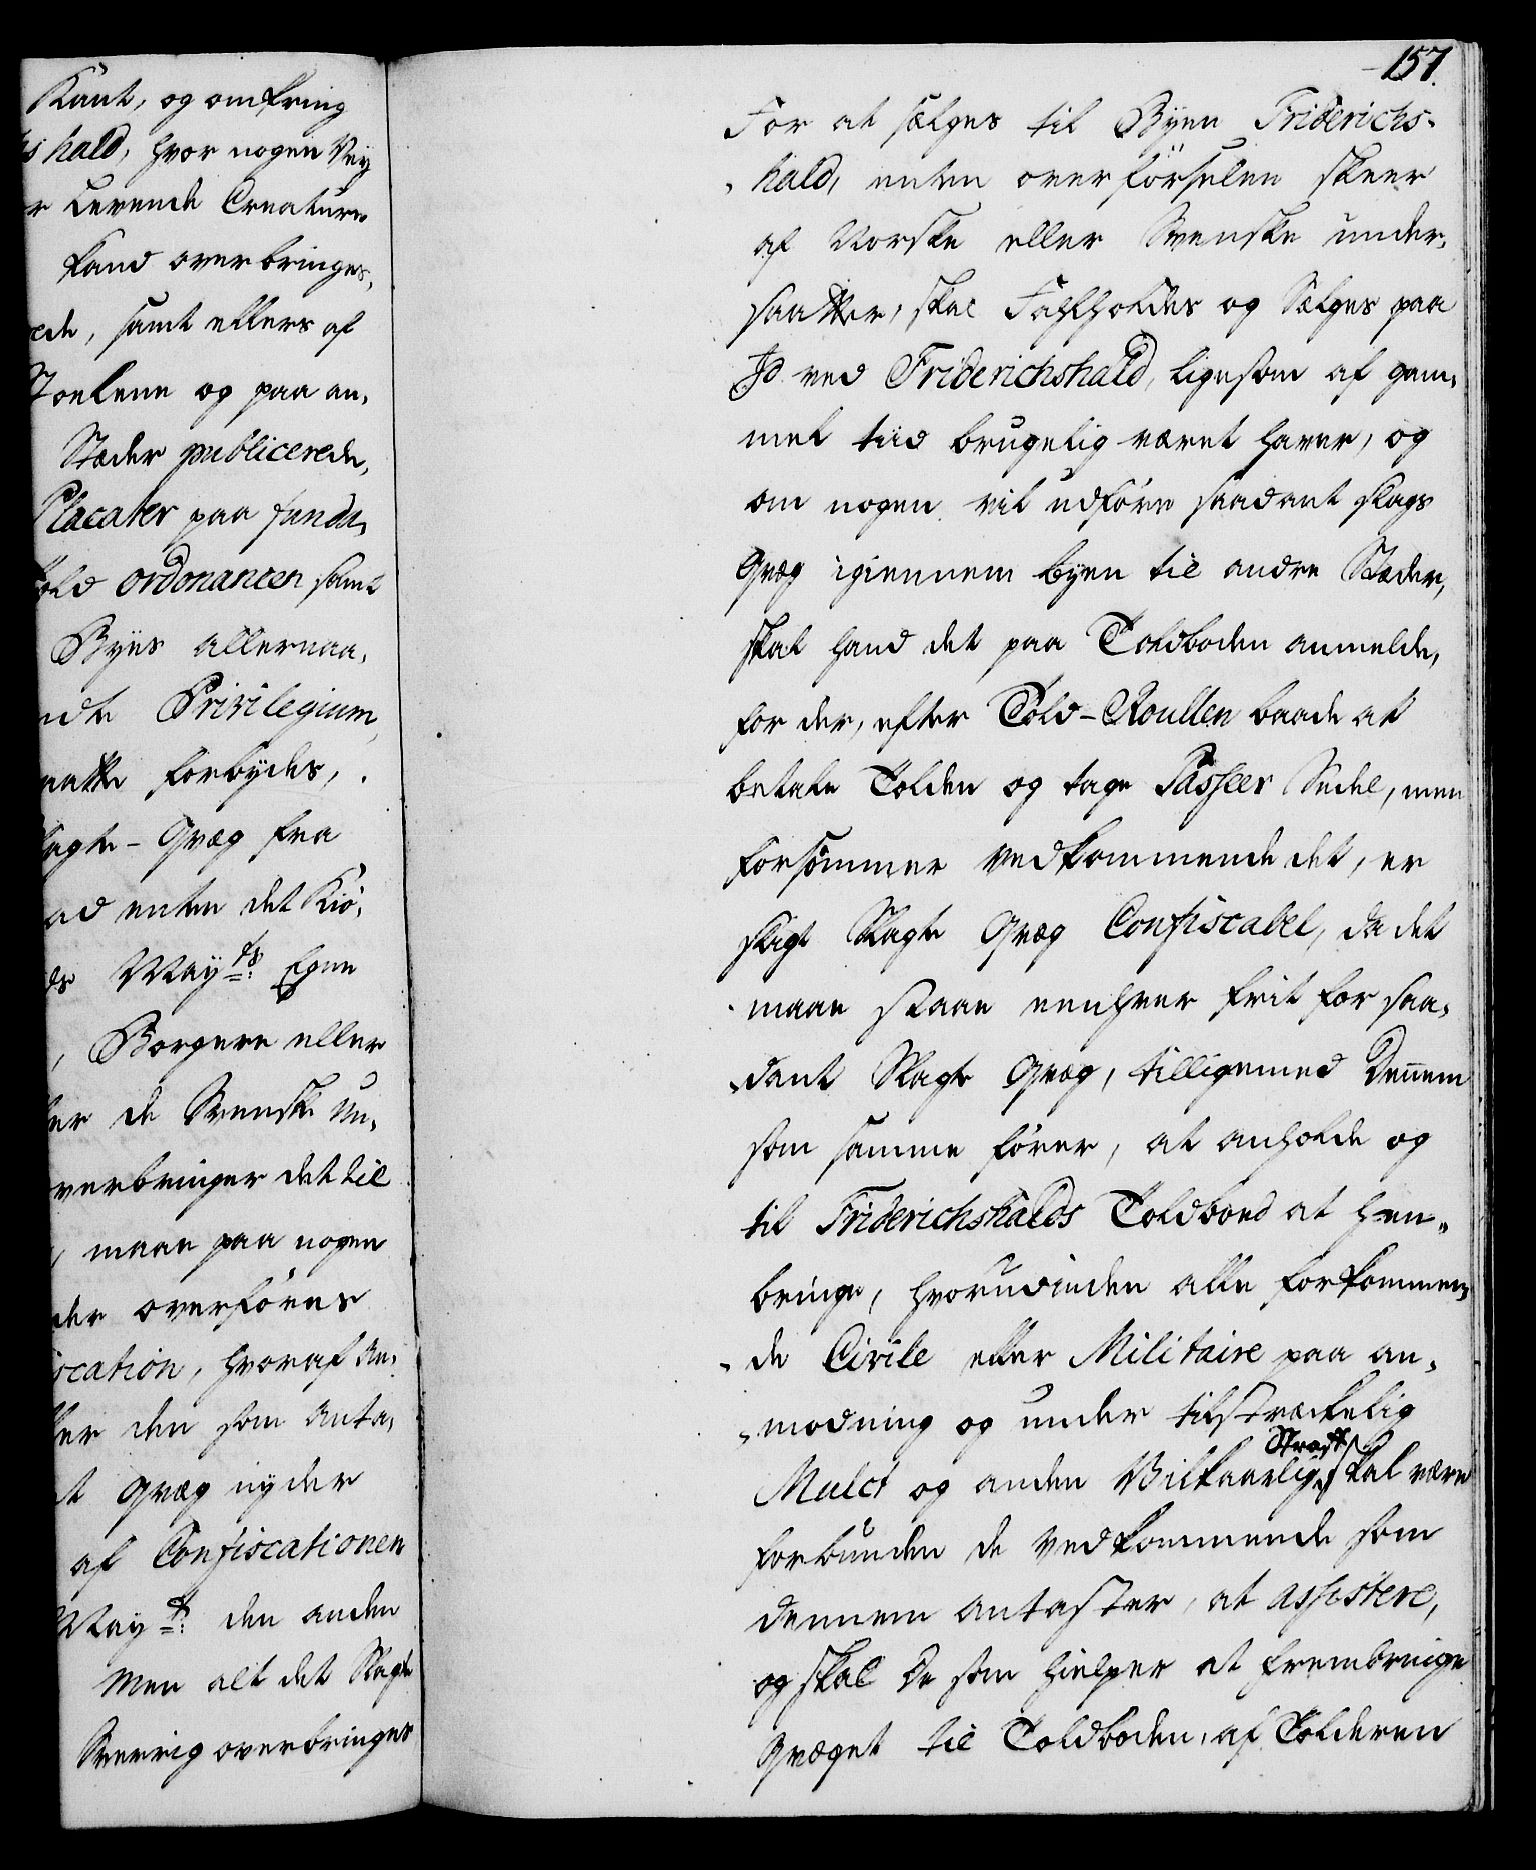 Kant, og omkring
hald, hvor nogen Vey
r Levende Creature
kand overbringes,
ede, samt ellers af
Stoelene og paa an-
Stæder publicerede,
Placater paa funda-
told ordonancen samt
Byes allernaa-
ndte Privilegium,
matte forbydes,
lagte-Qvæg fra
ad enten det Kiø-
ds Mayts: Egne
, Borgere eller
ler de Svenske Un-
verbringer det til
, maae paa nogen
der overføres
iscation, hvoraf An-
ler den som Anta-
t Qvæg nyder
af Confiscationen
Mayt: den anden
Men alt det Slagte
Sverrig overbringes
157.
For at sælges til Byen Friderichs-
hald, enten overførselen skeer
af Norske eller Svenske under-
saatter, skal Fahlholdes og Sælges paa
Id ved Friderichshald, ligesom af gam-
mel tiid brugelig været haver, og
om nogen vil udføre saadant slags
Qvæg igiennem byen til andre Stæder,
skal hand det paa Toldboden anmelde,
for der, efter Told-Roullen baade at
betale Tolden og tage Passeer Sedel, men
forsømmer vedkommende det, er
sligt Slagte Qvæg Confiscabel, da det
maae staae eenhver frit for saa-
dant Slagte Qvæg, tilligemed Dennem
som samme fører, at anholde og
til Friderichshalds Toldboed at hen-
bringe, hvorudinden alle forkommen-
de Civile eller Militaire paa an-
modning og under tilstræckelig
Mulct og anden Vilkaarlig Straff skal være
forbunden de vedkommende som
dennem antaster, at assistere,
og skal De som hielper at frembringe
Qvæget til Toldboden, af Tolderen